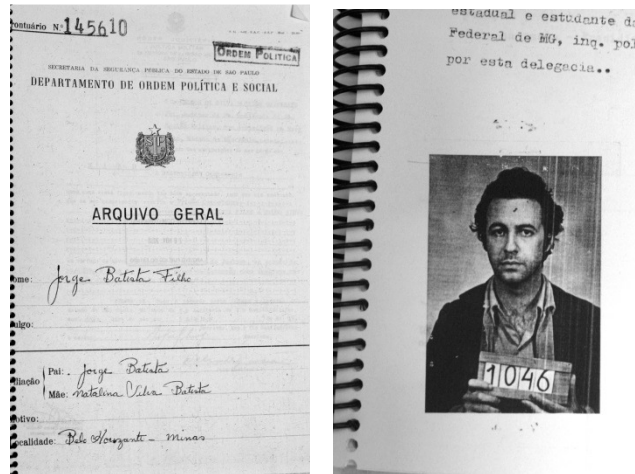 rontuário N.º 145610
ORDEM POLITICA
SECRETARIA DA SEGURANÇA PÚBLICA DO ESTADO DE SÃO PAULO
DEPARTAMENTO DE ORDEM POLÍTICA E SOCIAL
ARQUIVO GERAL
ome: Jorge Batista Filho
ulgo:
iliação
Pai: Jorge Batista
Mãe: Natalina Silva Batista
otivo:
ocalidade: Belo Horizonte - Minas
estadual e estudante da
Federal de MG, inq. pol
por esta delegacia..
1046